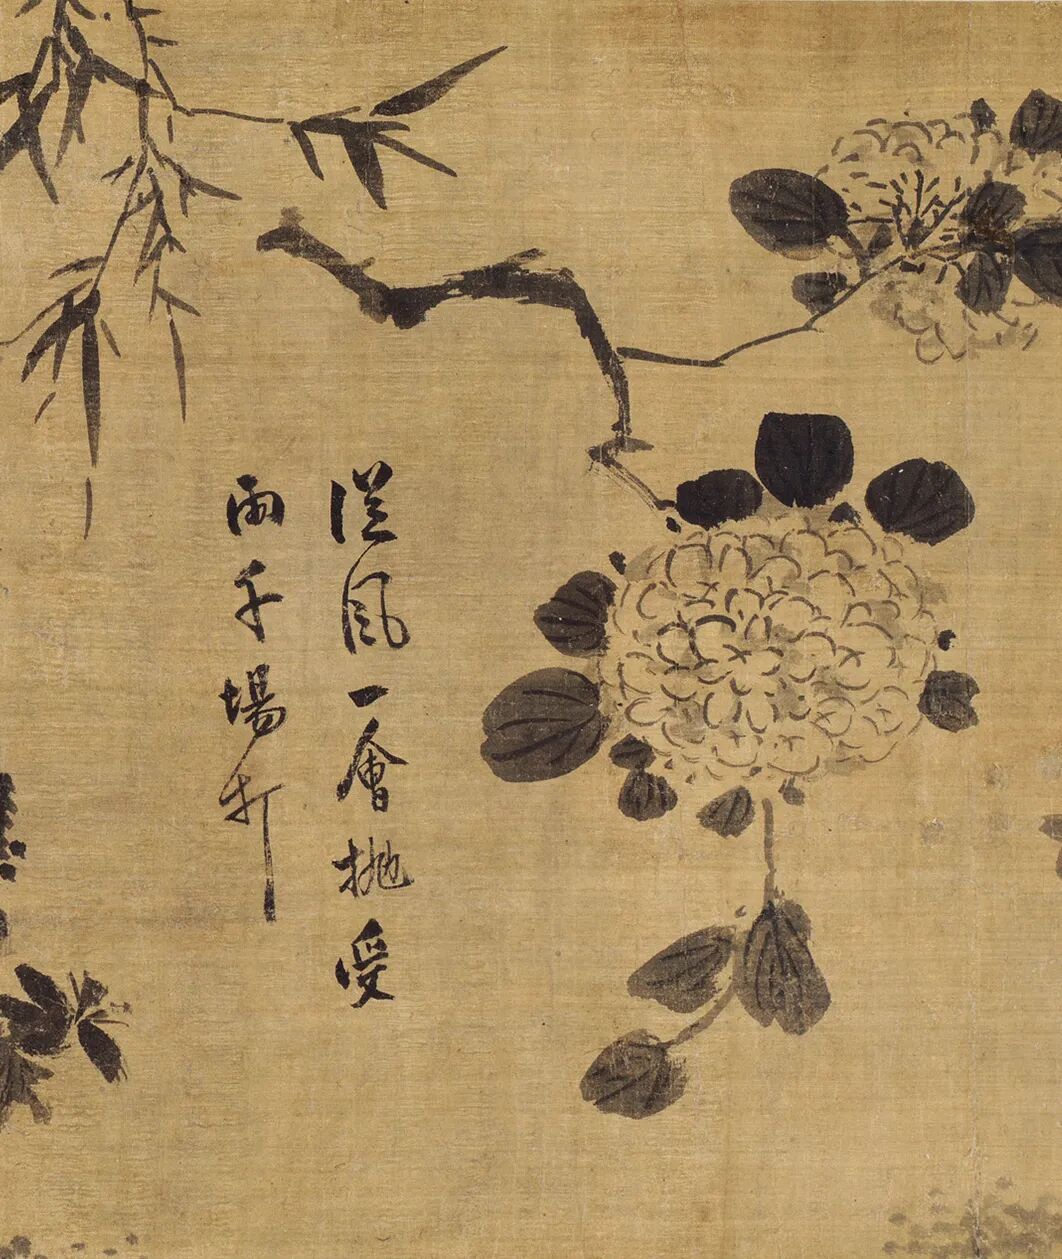 從風一會拋受
雨千場打